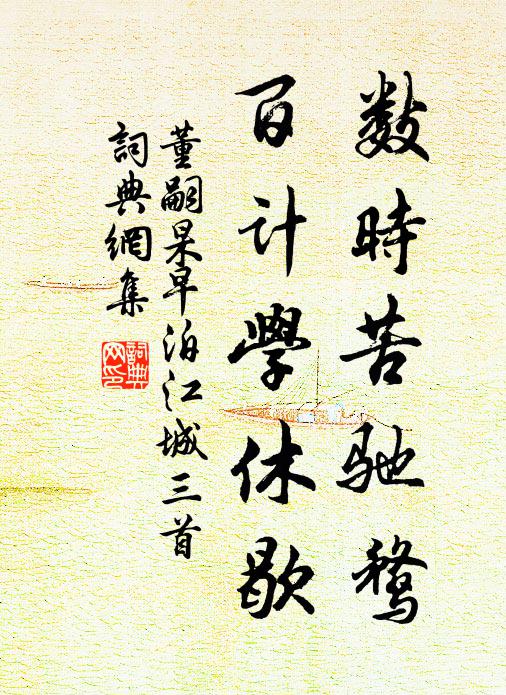 数時苦馳鶩
百计學休歇
董嗣杲早泊江城三首
詞典網集
詞典網印